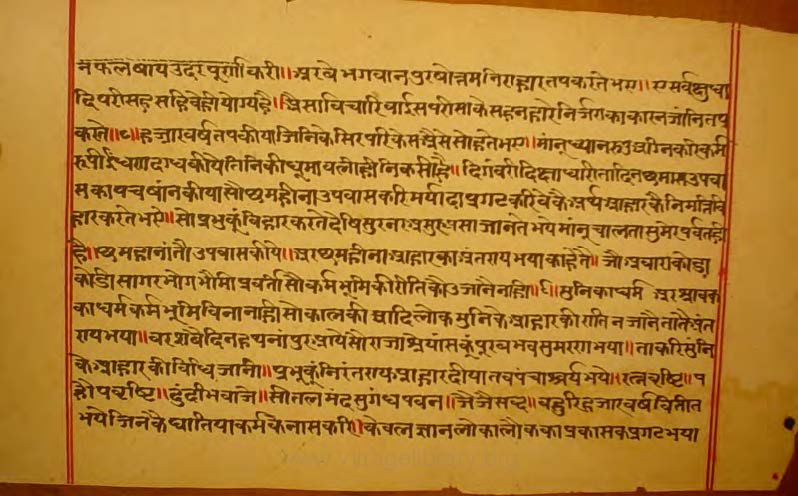 मफलषायउदरपूर्णाकरी॥अरबेभगवानपुरषोत्तमनिराहारतपकरतेभए॥एसर्वक्षुधा
दिपरीसहसहिवेहीयोग्यहै॥अैसाविचारिवाईसपरीसाकेसहनहारेनिर्जराकाकारनजांनितप
करते॥८॥हजारवर्षतपकीयाजिनिकेसिरपरिकेसअैसेसोहतेभए॥मांनूध्यानरुपअग्निकरिकर्म
रूपीईंधणदग्धकीयेतिनिकीधूमावलीहीनिकसीहै॥दिगंवरीदिक्षाधारीतादिनछमासउपवा
सकापचषांनकीयासोछमहीनाउपवासकरिमर्यादाप्रगटकरिवेकैअर्थआहारकैनिमत्तिवि
हारकरतेभऐ॥सोप्रभुकूंविहारकरतेदेषिसुरनरअसुरअैसाजानतेभयेमांनूचालतासुमेरपर्वतही
है॥छमहीनांतौउपवासकीये॥अरछमहीनाआहारकाअंतरायभयाकाहेतै॥जौअठाराकोडा
कोडीसागरभोगभौमीप्रवर्तीसौकर्मभूमिकीरीतिकौउजानैनही॥६॥मुनिकाधर्म अरश्रावक
काधर्मकर्मभूमिविनानाहीसोकालकीआदिलोकमुनिकेआहारकीरीतिनजानैतातैअंत
रायभया॥वरशवैदिनहथनांपुरआयेसौराजाश्रेयांसकूंपूरवभवसुमरणभया॥ताकरिमुंनि
केआहारकीविधिजांनी॥प्रभुकूंनिरंतरायआहारदीयातवपंचाश्चर्यभये॥रत्नवृष्टि॥प
हौपवृष्टि॥दुंदीभवाजे॥सीतलमंदसुगंधपवन॥जैजैसब्द॥वहुरिहजारवर्षवितीत
भयेजिनेकैघातियाकर्मकेनासकरि॥केवलज्ञानलोकालौककाप्रकासकप्रगटभया